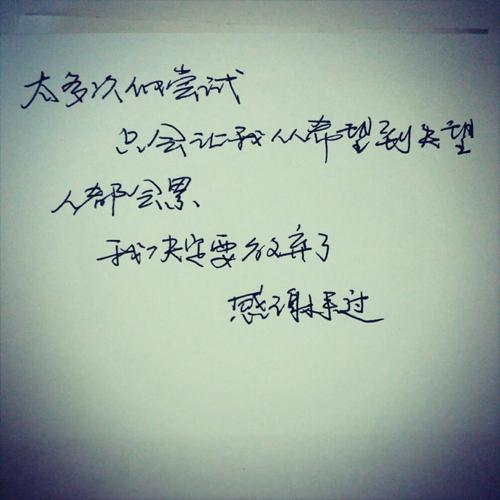 太多次的尝试
只会让我从希望到失望
人都会累
我决定要放弃了
感谢来过